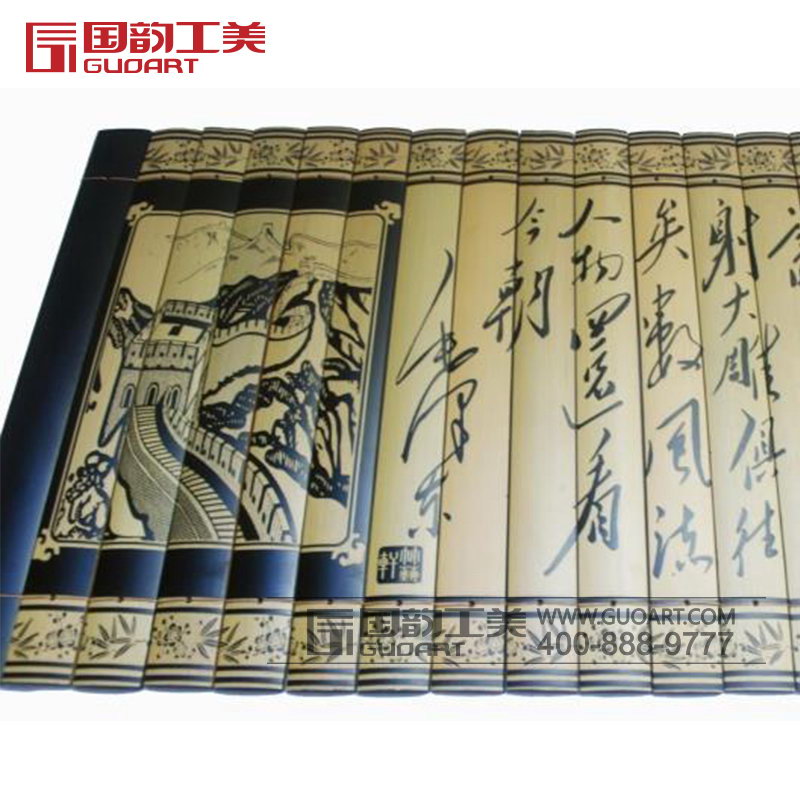 国韵工美
GUOART
射大雕俱往
矣數風流
人物還看
今朝
毛澤東
国韵工美
GUOART
WWW.GUOART.COM
400-888-9777